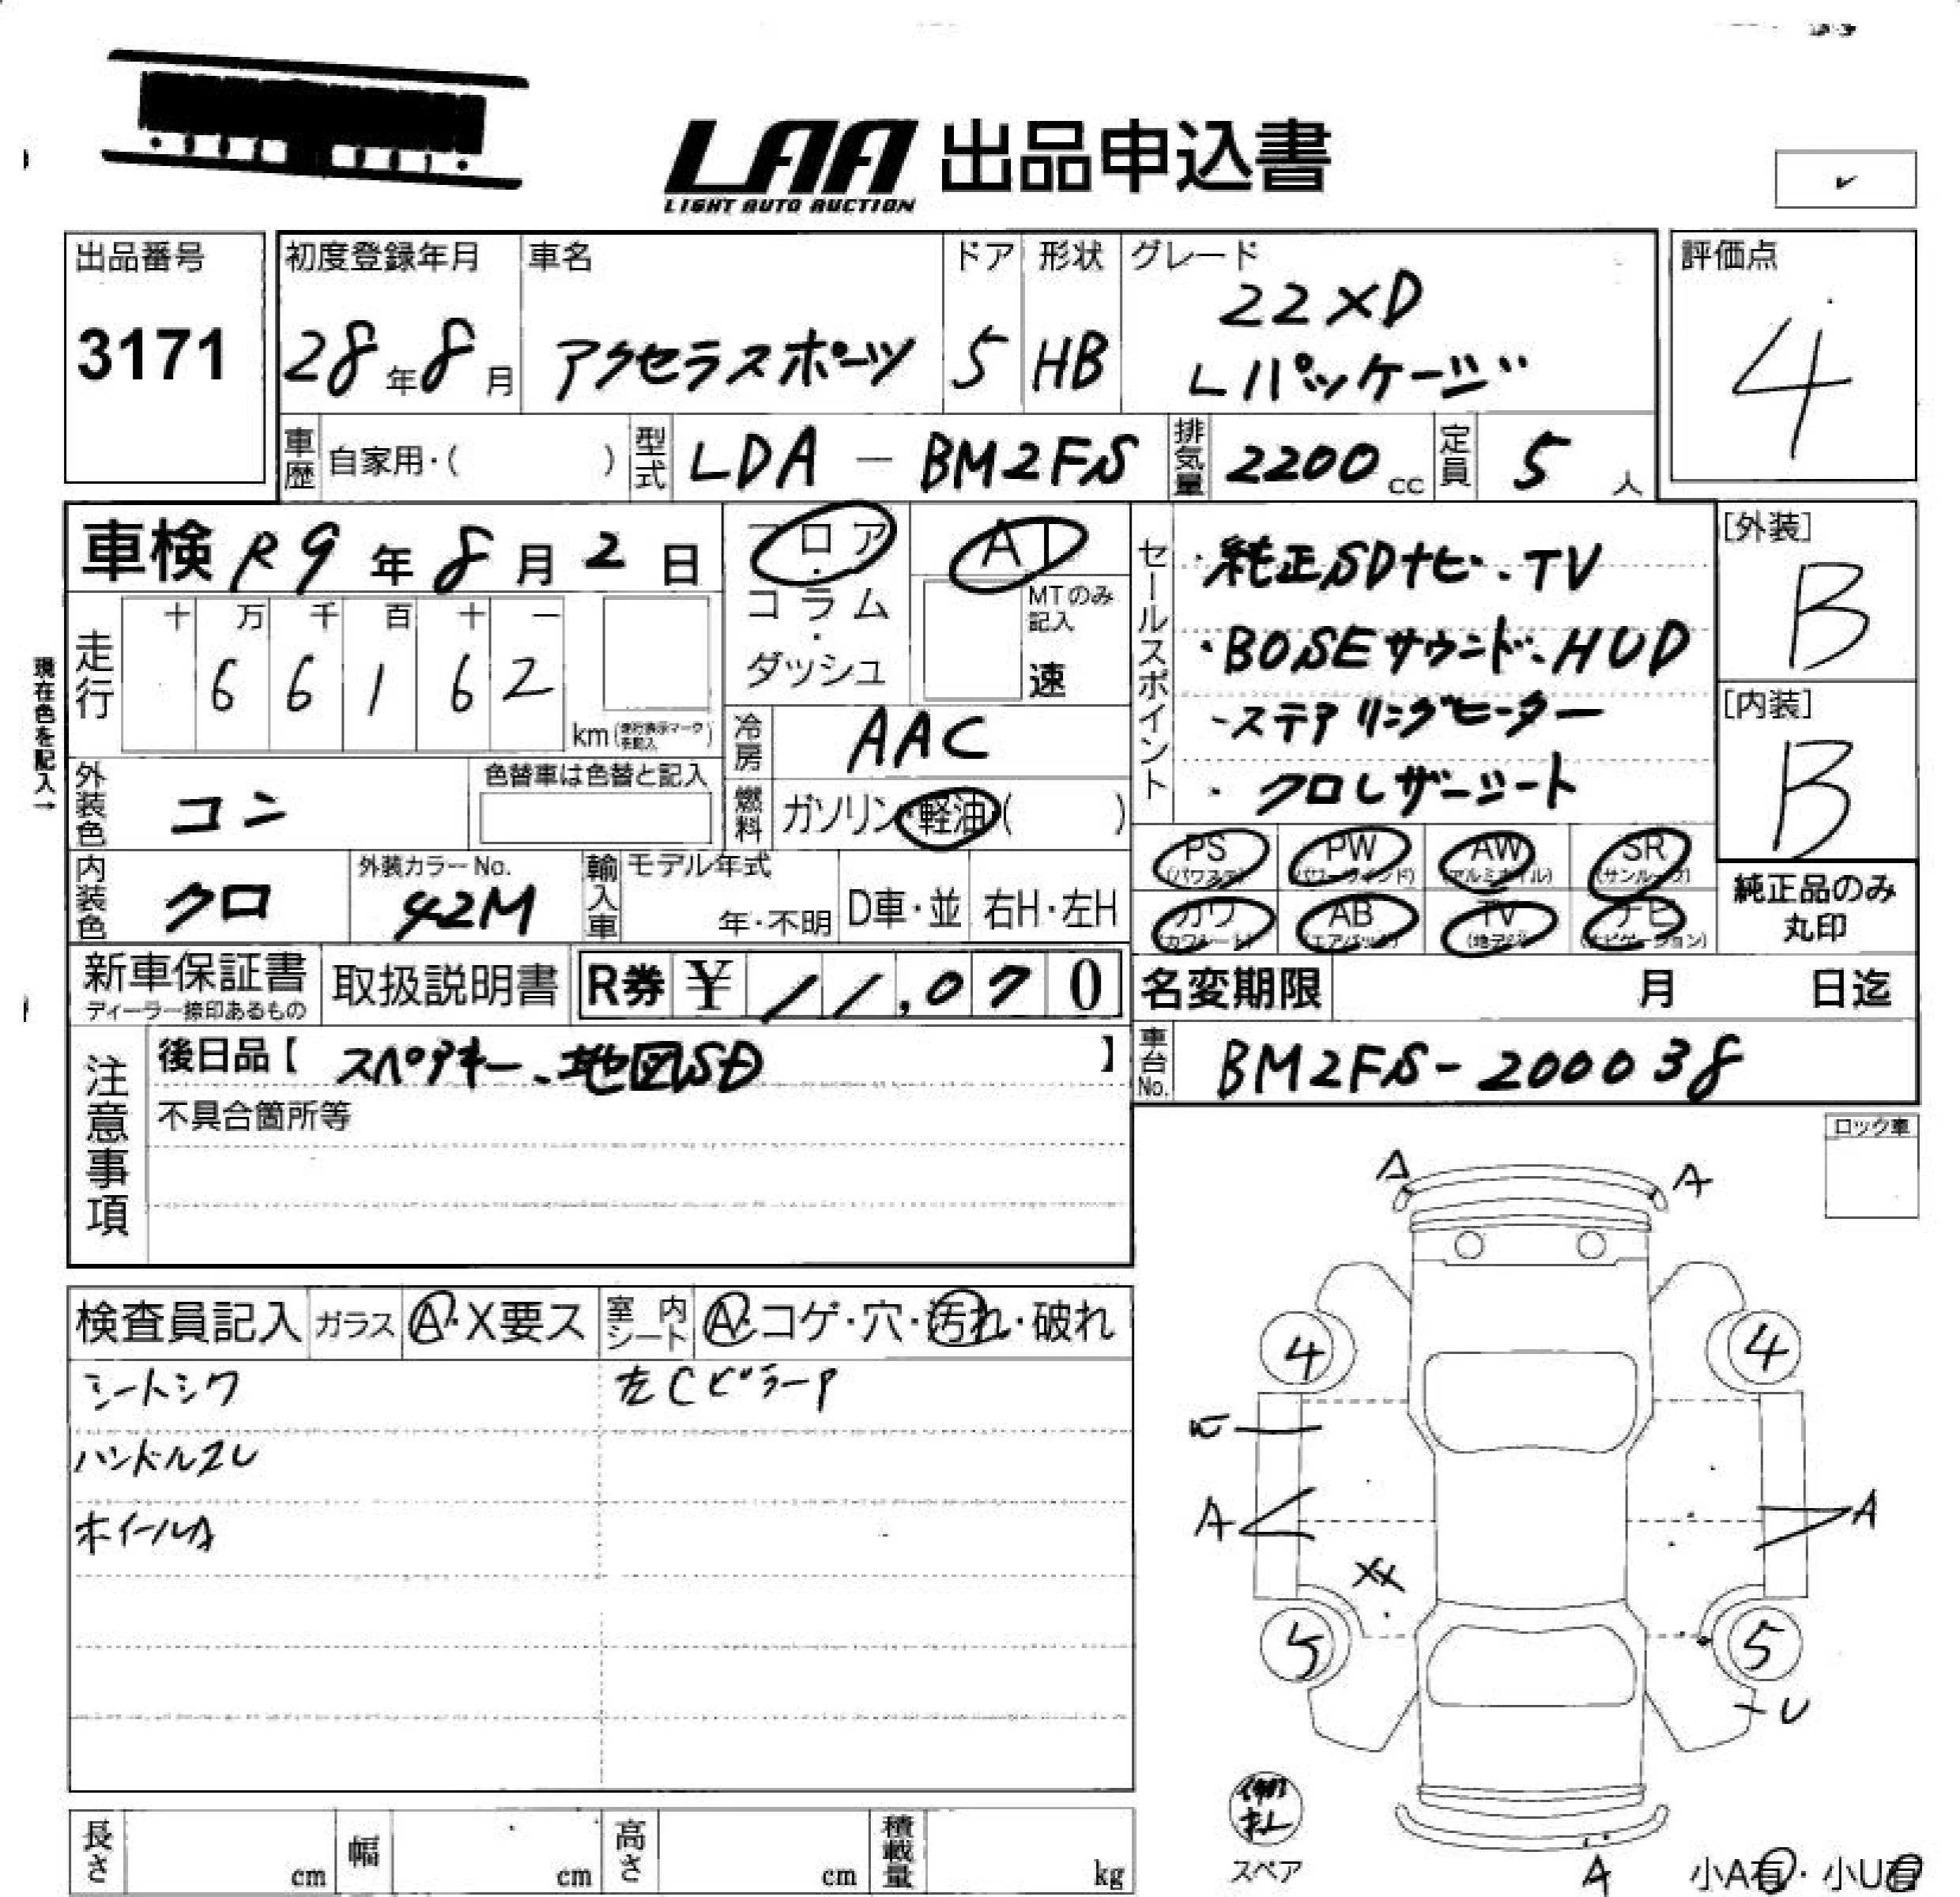 LAA 出品申込書
LIGHT AUTO AUCTION
出品番号
3171
初度登録年月
28年8月
車名
アクセラスポーツ
ドア
5
形状
HB
グレード
22XD
Lパッケージ
評価点
4
車歴 自家用・( )
型式 LDA-BM2FS
排気量 2200cc
定員 5人
車検 R9年8月2日
フロア・コラム・ダッシュ
AT
MTのみ記入
速
走行
十 万 千 百 十 一
6 6 1 6 2
km
現在色を記入→
冷房 AAC
燃料 ガソリン・軽油( )
外装色 コン
色替車は色替と記入
内装色 クロ
外装カラーNo.
42M
輸入車 モデル年式
年・不明 D車・並 右H・左H
セールスポイント
・純正SDナビ、TV
・BOSEサウンド、HUD
・ステアリングヒーター
・クロレザーシート
[外装]
B
[内装]
B
PS (パワステ) PW (パワーウインド) AW (アルミホイル) SR (サンルーフ)
カワ (カワシート) AB (エアバック) TV (地デジ) ナビ (ナビゲーション)
純正品のみ
丸印
新車保証書
ディーラー捺印あるもの
取扱説明書
R券 ¥11,070
名変期限 月 日迄
車台No. BM2FS-200038
注意事項
後日品【 スペアキー、地図SD 】
不具合箇所等
ロック車
検査員記入 ガラス A・X要ス 室内シート A・コゲ・穴・汚れ・破れ
シートシワ
左CピラーP
ハンドルスレ
ホイールA
A A
4 4
A A
XX
5 5
U
スペア
A
小A有・小U有
長さ cm 幅 cm 高さ cm 積載量 kg